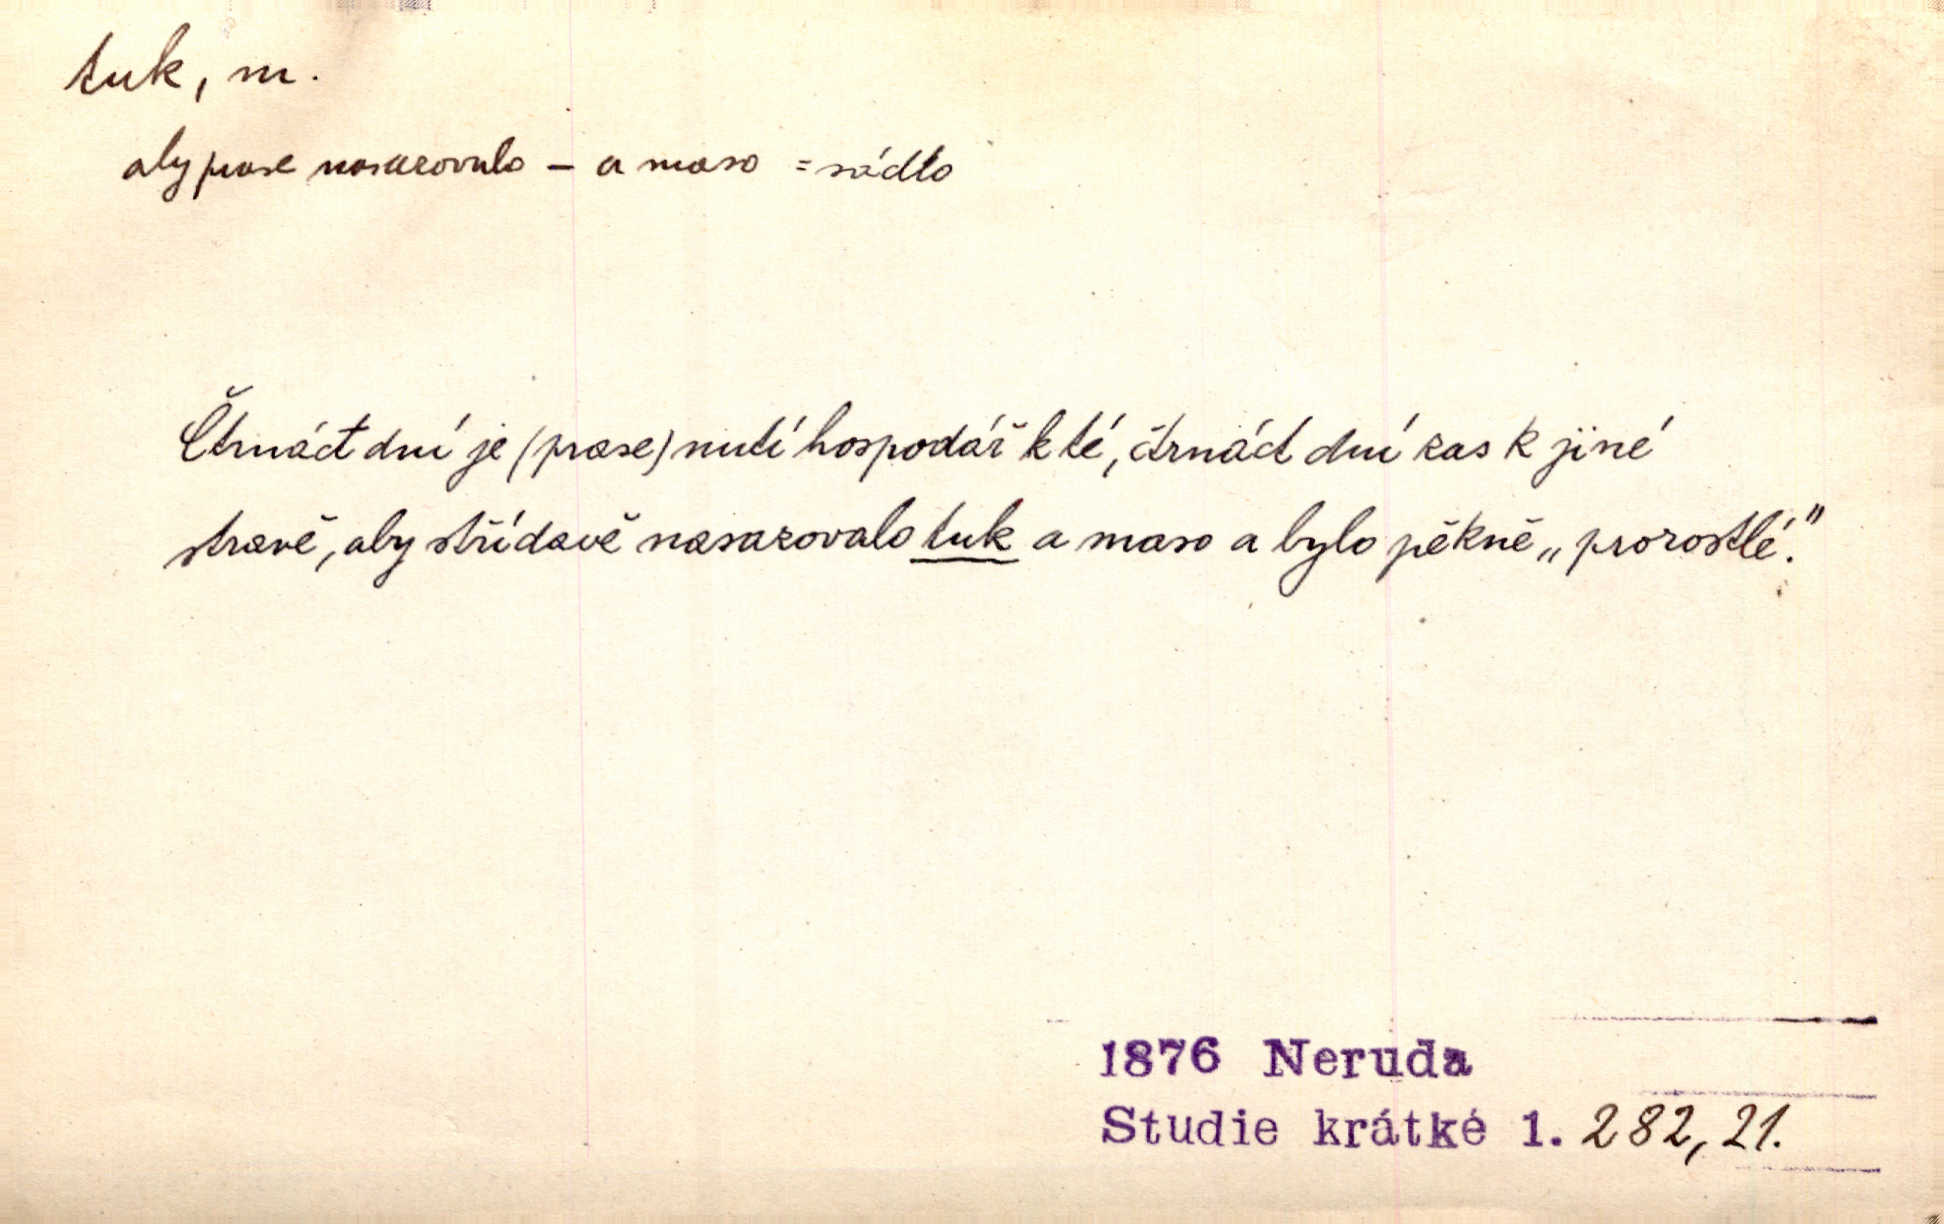 tuk, m.
aby prase nasazovalo – a maso = sádlo
Čtrnáct dní je (prase) nutí hospodář k té, čtrnáct dní zas k jiné
stravě, aby střídavě nasazovalo tuk a maso a bylo pěkně „prorostlé.“
1876 Neruda
Studie krátké 1. 282, 21.